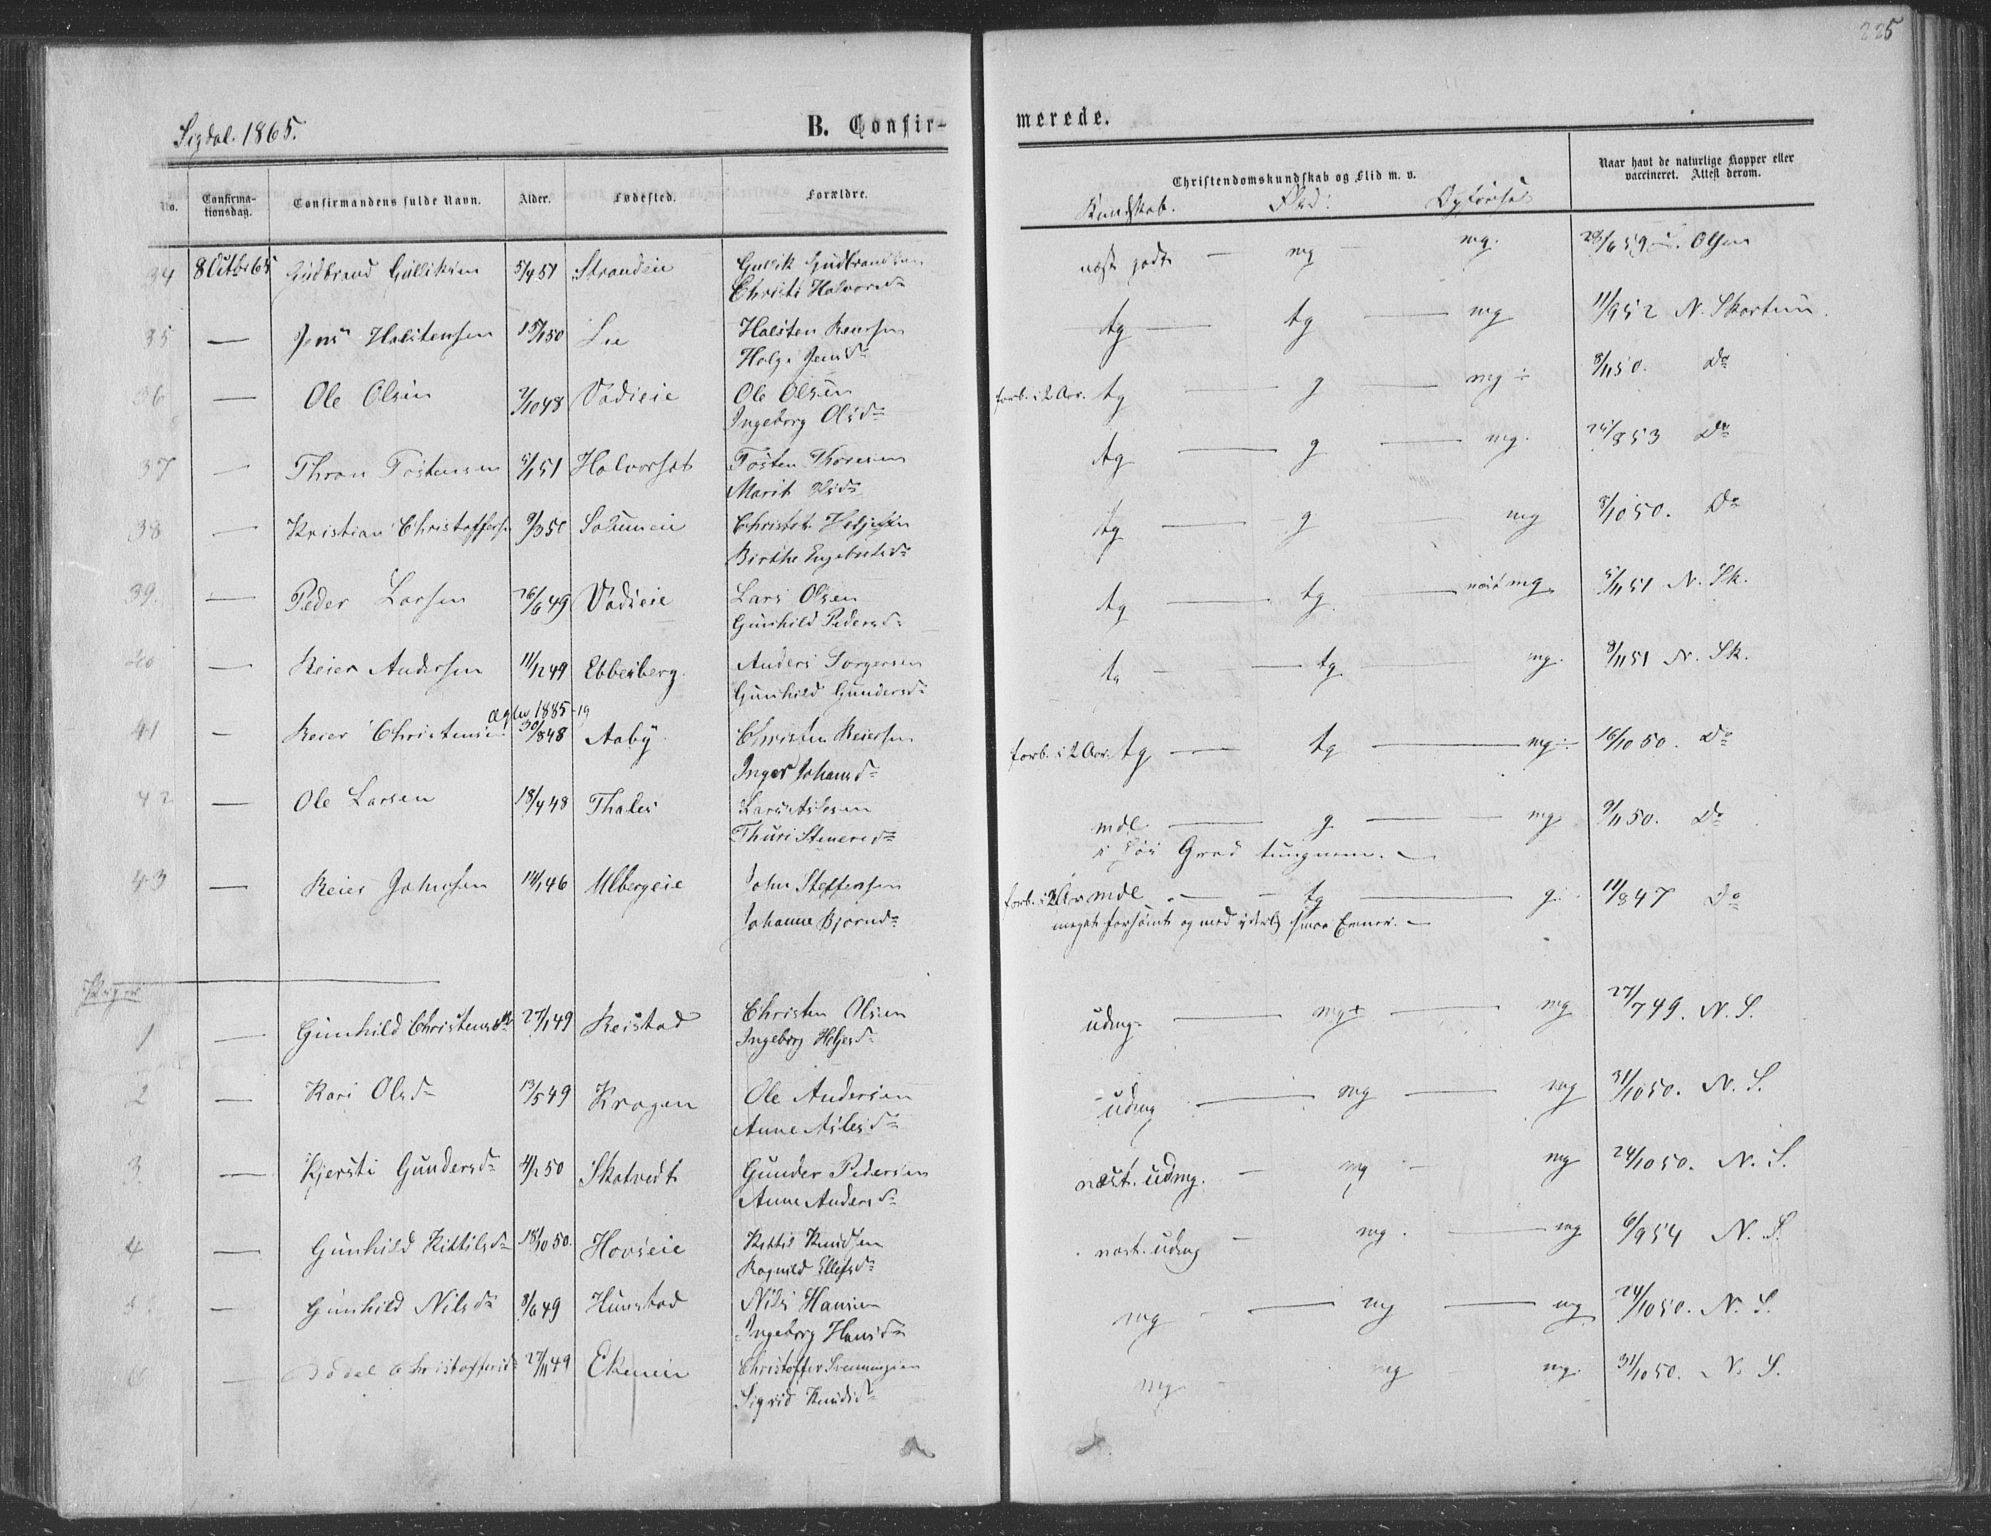 225
Sigdal. 1865.
B. Confir-
merede.
No.
Confirma-
tionsdag.
Confirmandens fulde Navn.
Alder.
Fødested.
Forældre.
Christendomskundskab og Flid m. v.
Naar havt de naturlige Kopper eller
vaccineret. Attest derom.
Kundskab. Flid: Opførsel
34 8 Octbr 65 Gudbrand Gulliksen 5/4 51 Strandeie Gullik Gudbrandsen næst godt — mg — mg. 23/6 59 Olsen
Christi Halvorsd
35 — Jens Halstensen 15/1 50 Lie Halsten Reiersen tg — tg — mg 11/9 52 N. Skartum.
Helge Jensd
36 — Ole Olsen 2/10 48 Vadseie Ole Olsen forb. i 2 Aar. tg — g — mg ÷ 8/11 50. Do
Ingeborg Olsd
37 — Thron Tostensen 5/1 51 Halvorset Tosten Thoresen tg — g — mg. 25/8 53 Do
Marit Olsd
38 — Kristian Christoffers 9/3 50 Solumeie Christof Helgesen tg — g — mg 8/10 50. Do
Birthe Engebretsd
39. — Peder Larsen 26/6 49 Vadseie Lars Olsen tg — tg. — næst mg. 5/11 51 N. Sk.
Gunhild Pedersd
40 — Reier Andersen 11/12 49 Ebbesberg. Anders Torgersen tg — — tg — mg. 8/11 51 N. Sk.
Gunhild Gundersd
1885-19
41 — Reier Christensen 30/8 48 Aaby Christen Reiersen forb. i 2 Aar. tg — tg — mg ÷ 16/10 50. Do
Inger Johansd
42 — Ole Larsen 18/4 48 Thales Lars Aslesen mdl. — g — mg 9/11 50. Do
Thuri Steneresd i høi Grad tungnem. —
43 — Reier Johnsen 14/1 46 Ulbergeie John Steffensen forb. i 2 Aar mdl. — tg — g. 11/8 47 Do
Johanne Bjørnsd meget forsømt og med yderlig smaa Evner. —
Piger
1 — Gunhild Christensd 27/1 49 Reistad Christen Olsen udmg. — mg+ — mg 27/7 49. N. S.
Ingeborg Helgesd
2 — Kari Olsd 13/5 49 Kragen Ole Andersen udmg — mg — mg 31/10 50. N. S.
Anne Aslesd
3. — Kjersti Gundersd 4/2 50 Skatvedt Gunder Pedersen næst. udmg. — mg — mg 24/10 50. N. S.
Anne Andersd
4 — Gunhild Kittilsd 18/10 50. Hovseie Kittil Knudsen næst. udmg — mg. — mg 6/9 54 N. S.
Ragnild Ellefsd
5 — Gunhild Nilsd 8/6 49 Hunstad Nils Hansen mg — mg — mg 24/10 50. N. S.
Ingeborg Hansd
6 — Christoffersd 27/11 49 Ekeneie Christoffer Svenningsen mg — mg — mg. 31/10 50. N. S.
Sigrid Knudsd